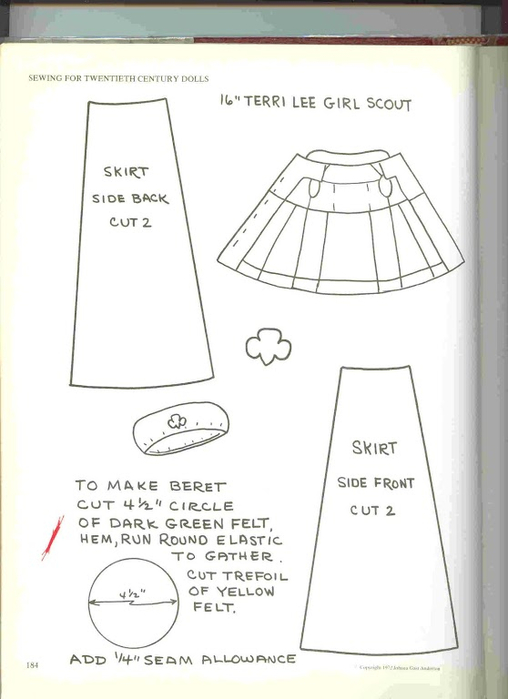 SEWING FOR TWENTIETH CENTURY DOLLS
16" TERRI LEE GIRL SCOUT
SKIRT
SIDE BACK
CUT 2
SKIRT
SIDE FRONT
CUT 2
TO MAKE BERET
CUT 4½" CIRCLE
OF DARK GREEN FELT,
HEM, RUN ROUND ELASTIC
TO GATHER.
CUT TREFOIL
OF YELLOW
FELT.
4½"
ADD ¼" SEAM ALLOWANCE
184
Copyright 1972 Johana Gast Anderton